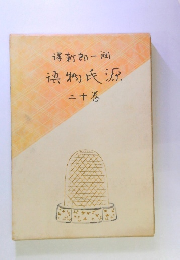 潤一郎新譯
源氏物語
巻十二